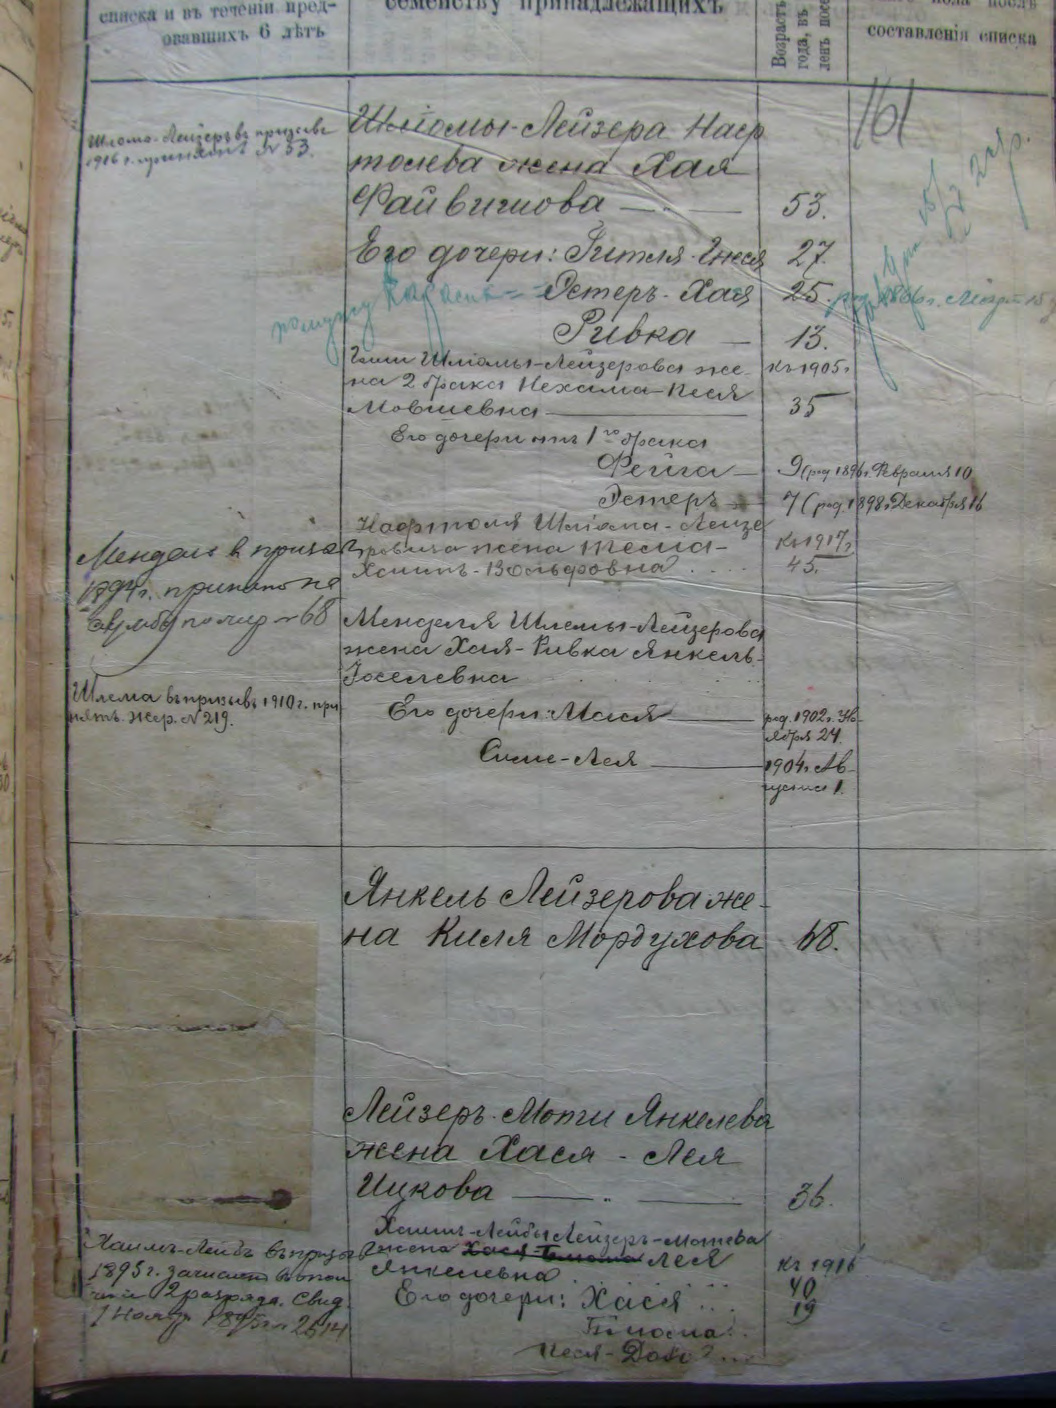 списка и въ теченіи пред-
овавшихъ 6 лѣтъ
семейству принадлежащихъ
Возрастъ
года, въ
ленъ посе
пола послѣ
составленія списка
161
Шлома-Лейзеръ въ призывѣ
1916 г. принятъ № 53.
Шліомы-Лейзера Наф
толева жена Хая
Файвишова — 53.
Его дочери: Гитля-Генеся 27.
Эстеръ-Хая 25. род. 1886 г.
Ривка — 13.
Шліомы-Лейзерова же-
на 2 брака Нехама-Песя
Мовшевна —
къ 1905 г.
35
Его дочери отъ 1го брака
Фейга — 9 (род 1896 г. Февраля 10
Эстеръ — 7 (род. 1898 г. Декабря 16
Нафтоля Шліома-Лейзе
ровича жена
Хаимъ-Вольфовна
къ 1917 г.
45.
Мендель в призыв
1894 г. принято на
службу по жер № 68
Менделя Шлемы-Лейзерова
жена Хая-Ривка Янкель-
Іоселевна
Шлема въ призывъ 1910 г. при
нятъ жер. № 219.
Его дочери: Мася —
род. 1902 г. Но-
ября 24.
Симе-Лея —
1904 г. Ав-
густа 1.
Янкель Лейзерова же-
на Киля Мордухова 68.
Лейзеръ-Моти Янкелева
жена Хася-Лея
Ицкова — 36.
Хаимъ-Лейбъ въ призывъ
1895 г. зачисленъ в опол
ченіе 2 разряда. Свид.
1 Ноябр. 1895 г. № 2514
Хаимъ-Лейбы Лейзеръ-Мотева
жена Лея
Янкелевна
къ 1916
40
Его дочери: Хася 19
Песя-